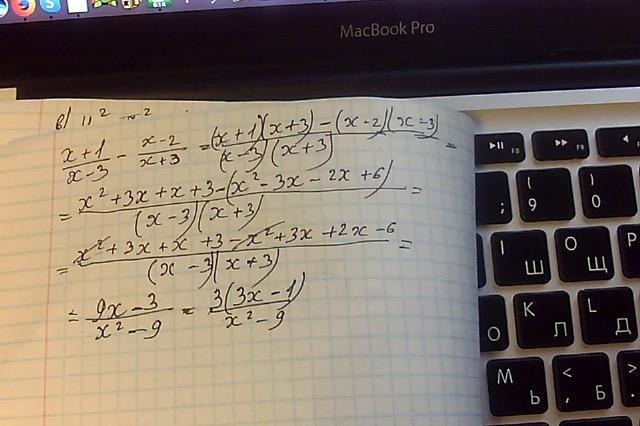 MacBook Pro
в)
x+1/x-3 - x-2/x+3 = (x+1)(x+3)-(x-2)(x-3)/(x-3)(x+3) =
= x²+3x+x+3-(x²-3x-2x+6)/(x-3)(x+3) =
= x²+3x+x+3-x²+3x+2x-6/(x-3)(x+3) =
= 9x-3/x²-9 = 3(3x-1)/x²-9
F8
F9
; ( 9 ) 0
I Ш O Щ P
О K Л L Д
M Ь < , Б >